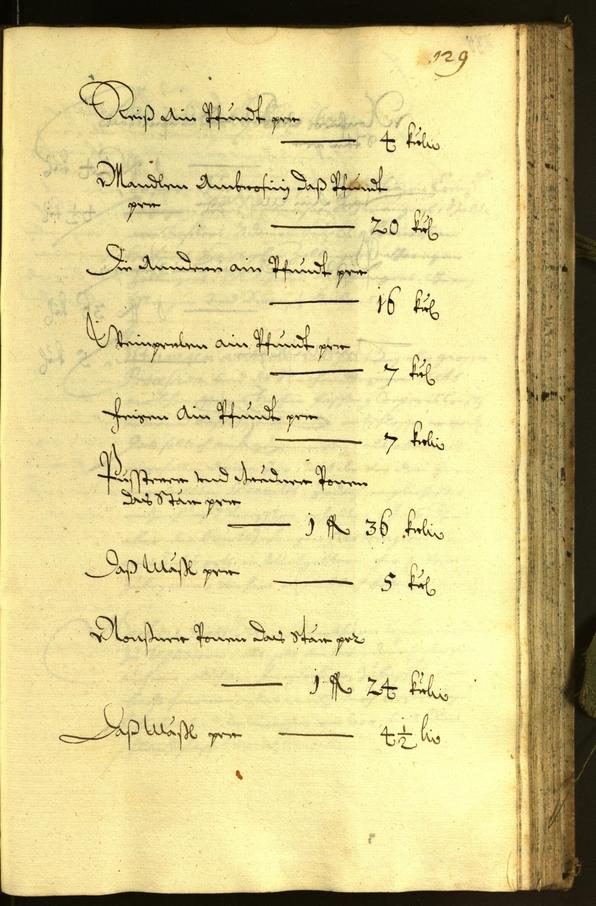 129
Reiß Ain Pfundt per
4 khr
Mandlen Ambrosin daß Pfundt
per
20 khr
Die Anndern ain Pfundt per
16 khr
Weinperlen ain Pfundt per
7 khr
Feigen Ain Pfundt per
7 khr
und Anndere Ponen
das Stär per
1 fl 36 khr
Daß Mäßl per
5 khr
Ponen das Stär per
1 fl 24 khr
Daß Mäßl per
4½